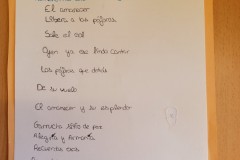 El amanecer
Libera a los pájaros
Sale el sol
Oyen ya ese lindo cantar
Los pájaros que detrás
De su vuelo
El amanecer y su esplendor
Garrucha sitio de paz
Alegría y Armonía